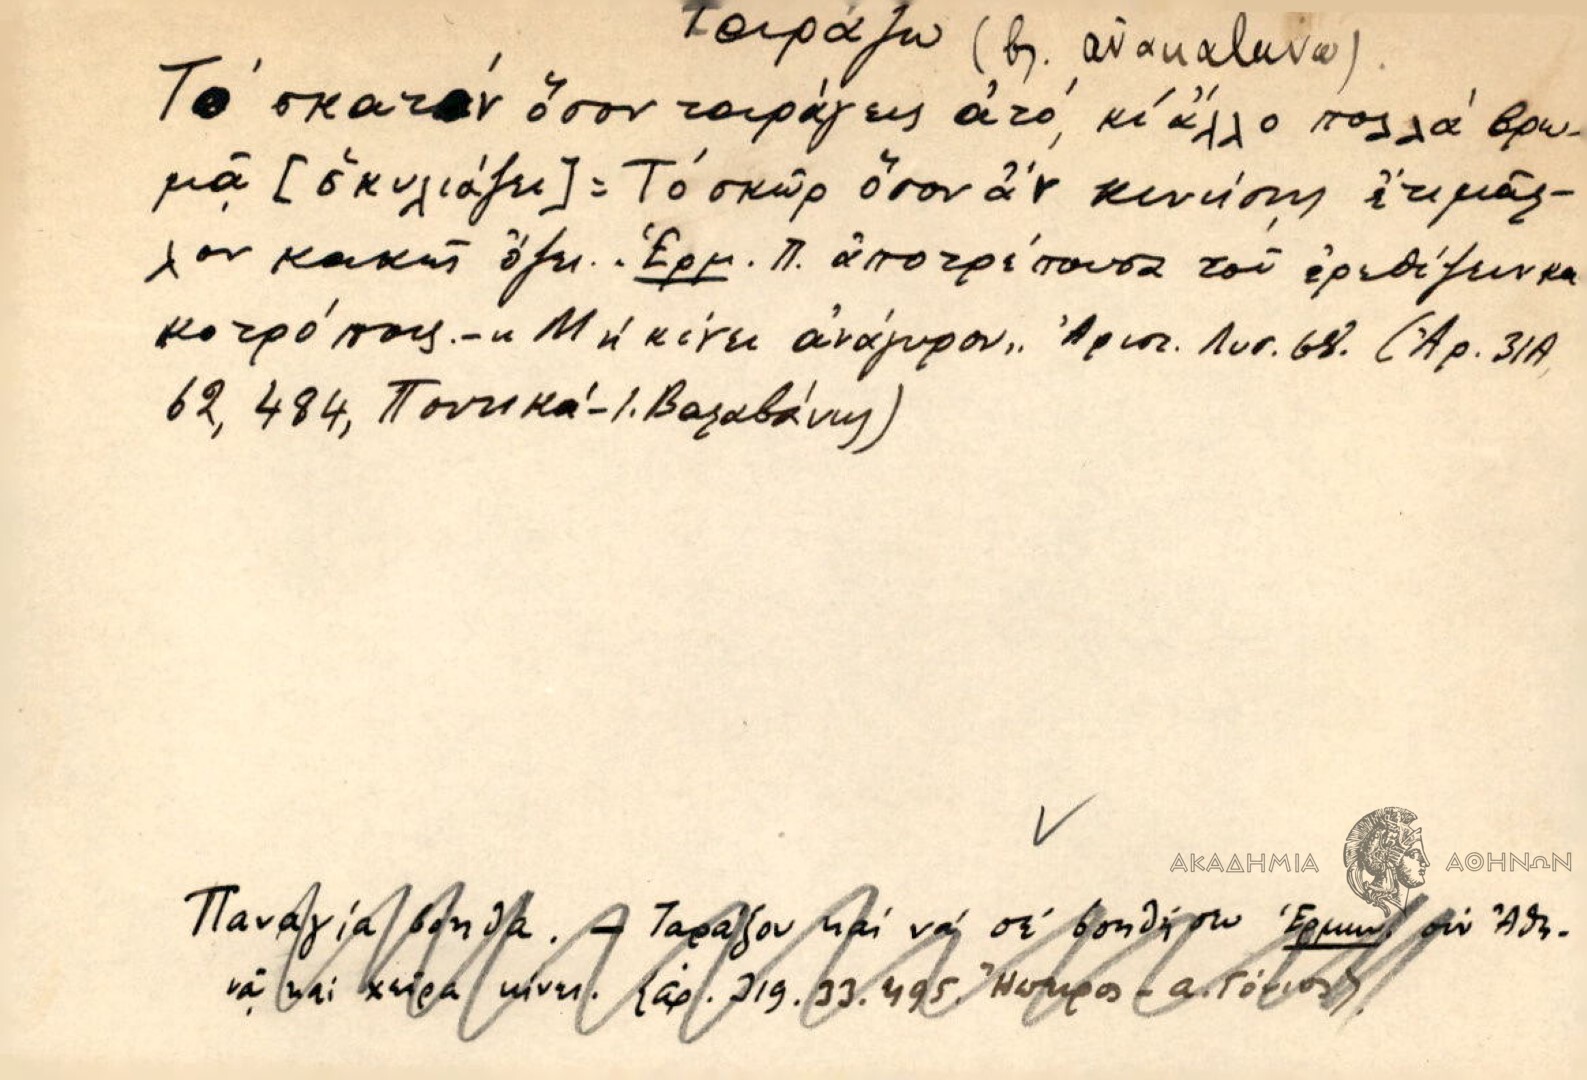 τσιράζω (βλ. ἀνακατώνω).
Τό σκατόν ὅσον τσιράγεις ἀτό, κι ἄλλο πολλά βρω-
μᾷ [ὀκυλιάζει] = Τό σκῶρ ὅσον ἄν κινήσῃς ἔτι μᾶλ-
λον κακῶς ὄζει. . Ἑρμ. Π. ἀποτρέπουσα τοῦ ἐρεθίζειν κα
κοτρόπους. - « Μή κίνει ἀνάγυρον „ Ἀριστ. Λυσ. 68. (Ἀρ. 31Α,
62, 484, Ποντικά - Ι. Βαλαβάνης)
ΑΚΑΔΗΜΙΑ ΑΘΗΝΩΝ
Παναγία βοήθα. - Ταράξου καί νά σέ βοηθήσω Ἑρμην. σύν Ἀθη-
νᾷ καί χεῖρα κίνει. (ἀρ. 319. 33. 495. Ἤπειρος - α.